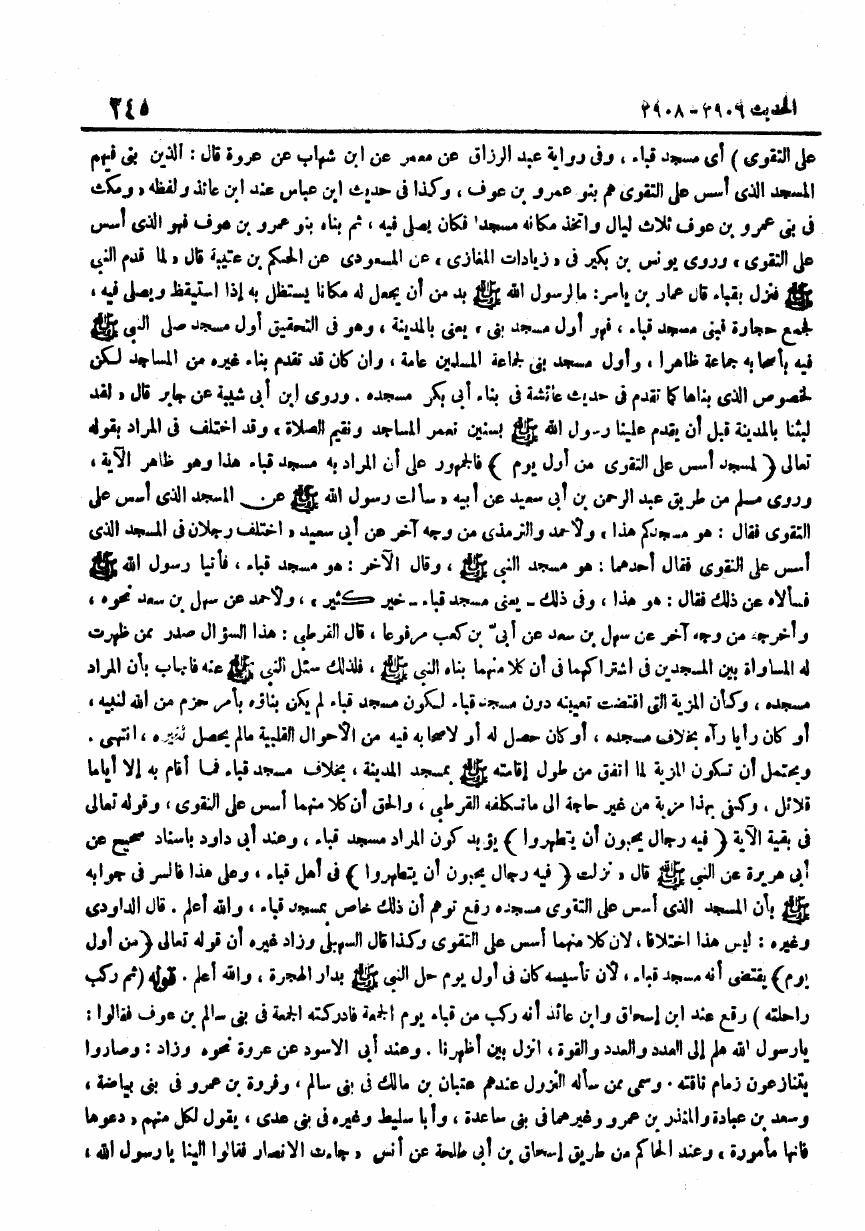 الحديث ٣٩٠٦ - ٣٩٠٨
٢٤٥
على التقوى ) أى مسجد قباء ، وفى رواية عبد الرزاق عن معمر عن ابن شهاب عن عروة قال : الذين بنى فيهم
المسجد الذى أسس على التقوى هم بنو عمرو بن عوف ، وكذا فى حديث ابن عباس عند ابن عائذ ولفظه « ومكث
فى بنى عمرو بن عوف ثلاث ليال واتخذ مكانه مسجدا فكان يصلى فيه ، ثم بناه بنو عمرو بن عوف فهو الذى أسس
على التقوى » وروى يونس بن بكير فى « زيادات المغازى » عن المسعودى عن الحكم بن عتيبة قال « لما قدم النبى
ﷺ فنزل بقباء قال عمار بن ياسر : ما لرسول الله ﷺ بد من أن يجعل له مكانا يستظل به إذا استيقظ ويصلى فيه ،
لجمع حجارة فبنى مسجد قباء ، فهو أول مسجد بنى » يعنى بالمدينة ، وهو فى التحقيق أول مسجد صلى النبى ﷺ
فيه بأصحابه جماعة ظاهرا ، وأول مسجد بنى لجماعة المسلمين عامة ، وان كان قد تقدم بناء غيره من المساجد لكن
لخصوص الذى بناها كما تقدم فى حديث عائشة فى بناء أبى بكر مسجده . وروى ابن أبى شيبة عن جابر قال « لقد
لبثنا بالمدينة قبل أن يقدم علينا رسول الله ﷺ بسنين نعمر المساجد ونقيم الصلاة » وقد اختلف فى المراد بقوله
تعالى ﴿ لمسجد أسس على التقوى من أول يوم ﴾ فالجمهور على أن المراد به مسجد قباء هذا وهو ظاهر الآية ،
وروى مسلم من طريق عبد الرحمن بن أبى سعيد عن أبيه « سألت رسول الله ﷺ عن المسجد الذى أسس على
التقوى فقال : هو مسجدكم هذا » ولأحمد والترمذى من وجه آخر عن أبى سعيد « اختلف رجلان فى المسجد الذى
أسس على التقوى فقال أحدهما : هو مسجد النبى ﷺ ، وقال الآخر : هو مسجد قباء ، فأتيا رسول الله ﷺ
فسألاه عن ذلك فقال : هو هذا ، وفى ذلك ـ يعنى مسجد قباء ـ خير كثير » ، ولأحمد عن سهل بن سعد نحوه ،
وأخرجه من وجه آخر عن سهل بن سعد عن أبىّ بن كعب مرفوعا ، قال القرطبى : هذا السؤال صدر ممن ظهرت
له المساواة بين المسجدين فى اشتراكهما فى أن كلا منهما بناه النبى ﷺ ، فلذلك سئل النبى ﷺ عنه فأجاب بأن المراد
مسجده ، وكأن المزية التى اقتضت تعيينه دون مسجد قباء لكون مسجد قباء لم يكن بناؤه بأمر حزم من الله لنبيه ،
أو كان رأيا رآه بخلاف مسجده ، أو كان حصل له أو لاصحابه فيه من الأحوال القلبية مالم يحصل لغيره ، انتهى .
ويحتمل أن تكون المزية لما اتفق من طول إقامته ﷺ بمسجد المدينة ، بخلاف مسجد قباء فما أقام به إلا أياما
قلائل ، وكفى بهذا مزية من غير حاجة الى ماتكلفه القرطبى ، والحق أن كلا منهما أسس على التقوى ، وقوله تعالى
فى بقية الآية ﴿ فيه رجال يحبون أن يتطهروا ﴾ يؤيد كون المراد مسجد قباء ، وعند أبى داود باسناد صحيح عن
أبى هريرة عن النبى ﷺ قال « نزلت ﴿ فيه رجال يحبون أن يتطهروا ﴾ فى أهل قباء ، وعلى هذا فالسر فى جوابه
ﷺ بأن المسجد الذى أسس على التقوى مسجده رفع توهم أن ذلك خاص بمسجد قباء ، والله أعلم . قال الداودى
وغيره : ليس هذا اختلافا ، لان كلا منهما أسس على التقوى وكذا قال السهيلى وزاد غيره أن قوله تعالى ﴿ من أول
يوم ﴾ يقتضى أنه مسجد قباء ، لأن تأسيسه كان فى أول يوم حل النبى ﷺ بدار الهجرة ، والله أعلم . قوله ( ثم ركب
راحلته ) وقع عند ابن إسحاق وابن عائذ أنه ركب من قباء يوم الجمعة فادركته الجمعة فى بنى سالم بن عوف فقالوا :
يارسول الله هلم إلى العدد والعدد والقوة ، انزل بين أظهرنا . وعند أبى الاسود عن عروة نحوه وزاد : وصاروا
يتنازعون زمام ناقته . وسمى ممن سأله النزول عندهم عتبان بن مالك فى بنى سالم ، وفروة بن عمرو فى بنى بياضة ،
وسعد بن عبادة والمنذر بن عمرو وغيرهما فى بنى ساعدة ، وأبا سليط وغيره فى بنى عدى ، يقول لكل منهم « دعوها
فانها مأمورة » وعند الحاكم من طريق إسحاق بن أبى طلحة عن أنس « جاءت الانصار فقالوا الينا يا رسول الله ،